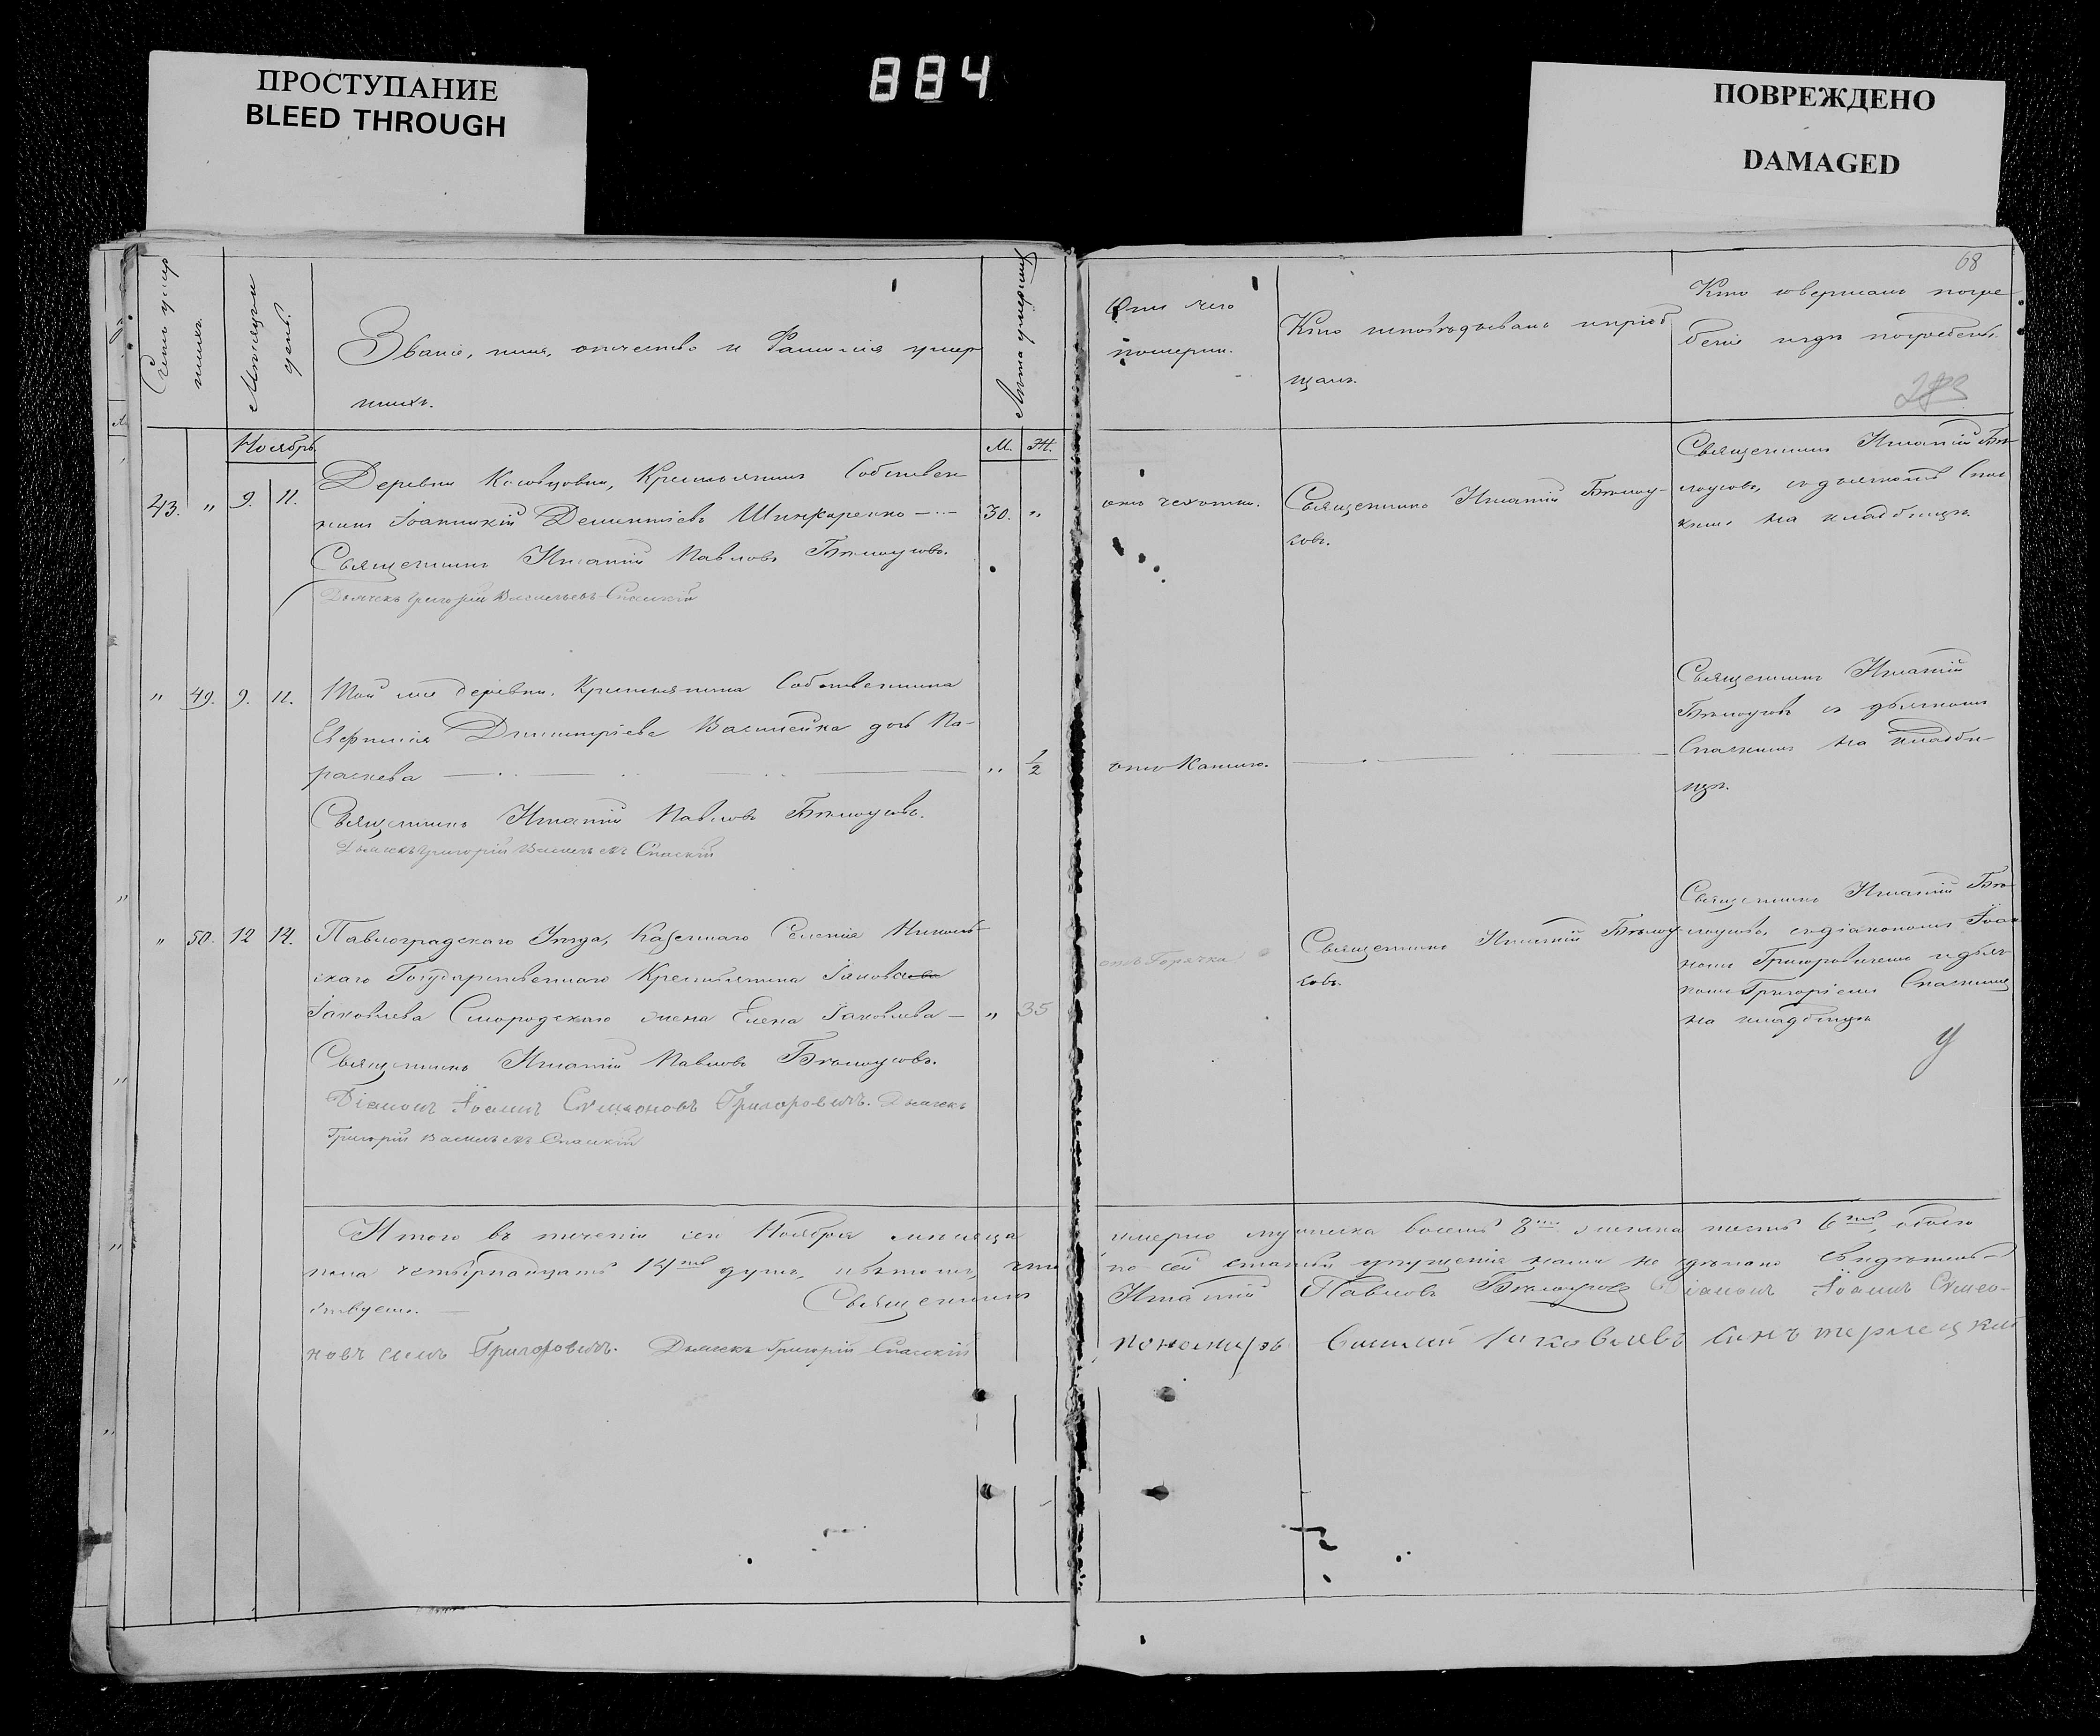 ПРОСТУПАНИЕ
BLEED THROUGH
884
ПОВРЕЖДЕНО
DAMAGED
68
Счетъ умер
шихъ.
Мѣсяцъ и
день.
Званіе, имя, отчество и Фамилія умер
шихъ.
Лѣта умершихъ
Отъ чего
померли.
Кто исповѣдывалъ и пріоб
щалъ.
Кто совершалъ погре
беніе и гдѣ погребены.
Ноябрь
М. Ж.
43. " 9. 11.
Деревни Крестьянинъ Собствен
никъ Іоанникій Дементіевъ Шинкаренко
30. "
Священникъ Игнатій Павловъ Бѣлоусовъ.
Дьячекъ Григорій Васильевъ Спасскій
отъ чахотки.
Священникъ Игнатій Бѣлоу-
совъ.
Священникъ Игнатій Бѣ-
лоусовъ, съ дьячкомъ Спас
кимъ на кладбищѣ.
" 49. 9. 11.
Той же деревни, Крестьянина Собственника
Евфимія Димитріева дочь Па-
раскева
" 1/2
Священникъ Игнатій Павловъ Бѣлоусовъ.
Дьячекъ Григорій Васильевъ Спаскій
отъ Кашлю.
Священникъ Игнатій
Бѣлоусовъ съ дьячкомъ
Спаскимъ на кладби-
щѣ.
" 50. 12 14.
Павлоградскаго Уѣзда, Казеннаго Селенія Николь
скаго Государственнаго Крестьянина Іакова
Іаковлева Смородскаго жена Елена Іаковлева
" 35
Священникъ Игнатій Павловъ Бѣлоусовъ.
Діаконъ Іоаннъ Сѵмеоновъ Григоровичъ. Дьячекъ
Григорій Васильевъ Спаскій
отъ Горячки
Священникъ Игнатій Бѣлоу
совъ.
Священникъ Игнатій Бѣ-
лоусовъ, съ діакономъ Іоан
номъ Григоровичемъ и дьяч
комъ Григоріемъ Спаскимъ
на кладбищѣ
Итого въ теченіи сего Ноября мѣсяца умерло мужеска восемь 8мь женска шесть 6ть, обоего
пола четырнадцать 14ть душъ, и въ томъ, что по сей статьи упущенія нами не здѣлано свидѣтель-
ствуемъ. Священникъ Игнатій Павловъ Бѣлоусовъ Діаконъ Іоаннъ Сѵмео-
новъ сынъ Григоровичъ. Дьячекъ Григорій Спасскій пономарь Василій Іаковлевъ сынъ